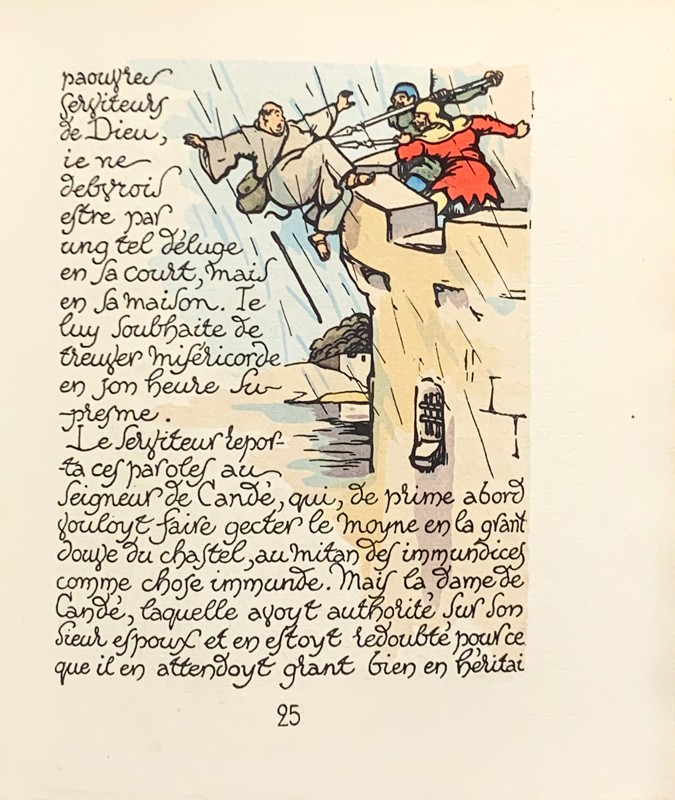 paouvres
serviteurs
de Dieu,
ie ne
debvrois
estre par
ung tel déluge
en sa court, mais
en sa maison. Ie
luy soubhaite de
treuver miséricorde
en son heure su-
presme.
Le serviteur repor-
ta ces paroles au
seigneur de Candé, qui, de prime abord
vouloyt faire gecter le moyne en la grant
douve du chastel, au mitan des immundices
comme chose immunde. Mais la dame de
Candé, laquelle avoyt authorité sur son
sieur espoux et en estoyt redoubté pour ce
que il en attendoyt grant bien en héritai
25